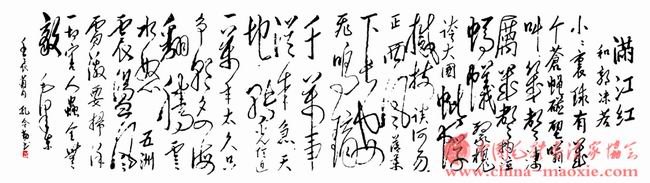 滿江红
和郭沫若
小小寰球有几
个苍蝇碰壁嗡嗡
叫几声凄
厉几声抽泣
蚂蚁缘槐
夸大国蚍蜉
撼树谈何易
正西风落叶
下长安
飞鸣镝
多少事
从来急天
地转光阴迫
一万年太久只
争朝夕四海
翻腾云
水怒五洲
震荡风
雷激要扫除
一切害人虫全无
敌 毛泽东
www.china-maoxie.com